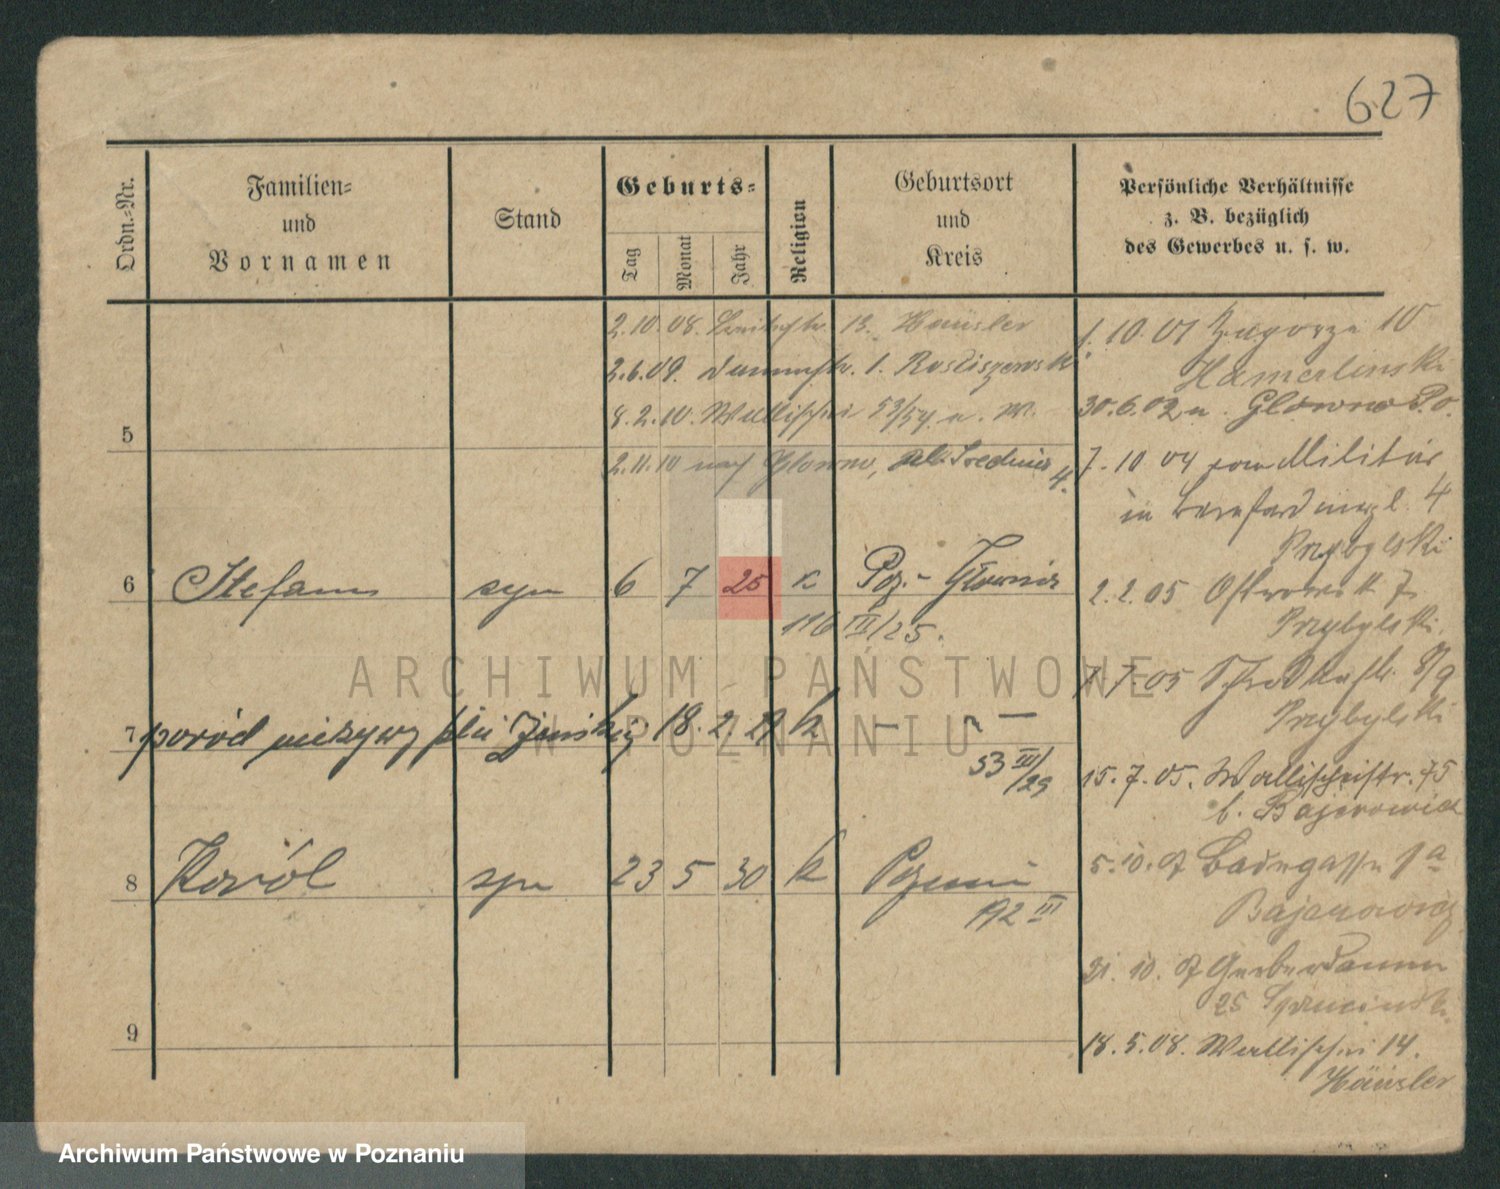 627
Ordn.=Nr.
Familien=
und
Vornamen
Stand
Geburts=
Tag
Monat
Jahr
Religion
Geburtsort
und
Kreis
Persönliche Verhältnisse
z. B. bezüglich
des Gewerbes u. s. w.
2.10.08. 13. Häusler
2.6.09. Dammstr. 1.
8.2.10. Wallischei 53/54 u. W.
5
2.11.10 nach Glowno, 4.
6 Stefan syn 6 7 25 k Poz.- Główna
116 III/25.
7 poród nieżywy płci żeńskiej 18. 2. 29 k — " —
53 III/29
8 Karól syn 23 5 30 k Poznań
192 III
9
1.10.01 Zagorze 10
Hamerlinski
30.6.02 n. Glowno
7.10 04 vom Militär
in 4
Przybylski
2.2.05 Ostrowek 7
Przybylski.
7.7.05 8/9
Przybylski
15.7.05. Wallischeistr. 75
b. Bajerowicz
5.10.07 Badegasse 1a
Bajerowicz
31.10.07 Gerberdamm
25
18.5.08. Wallischei 14.
Häusler
ARCHIWUM PAŃSTWOWE
W POZNANIU
Archiwum Państwowe w Poznaniu